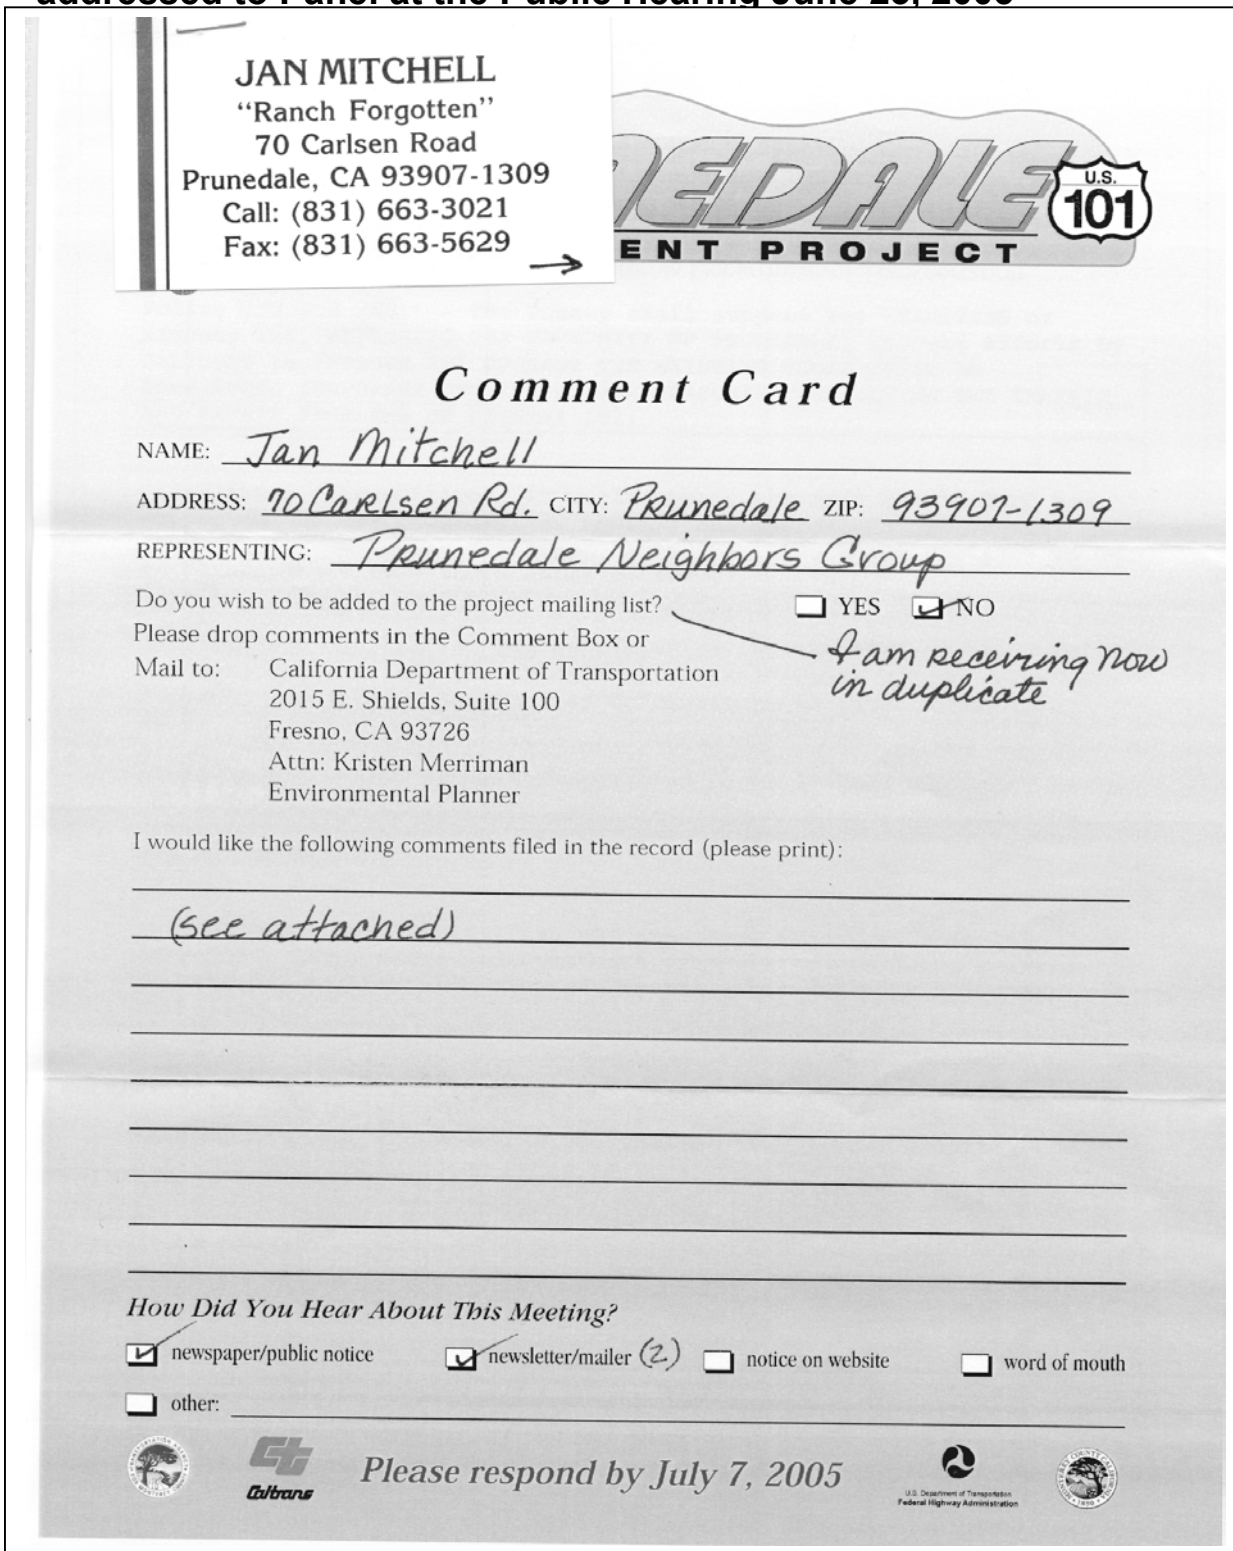 addressed to Panel at the Public Hearing June 23, 2005
JAN MITCHELL
"Ranch Forgotten"
70 Carlsen Road
Prunedale, CA 93907-1309
Call: (831) 663-3021
Fax: (831) 663-5629
NEDALE
U.S.
101
ENT PROJECT
Comment Card
NAME: Jan Mitchell
ADDRESS: 70 Carlsen Rd. CITY: Prunedale ZIP: 93907-1309
REPRESENTING: Prunedale Neighbors Group
Do you wish to be added to the project mailing list? YES NO
Please drop comments in the Comment Box or
I am receiving now
in duplicate
Mail to: California Department of Transportation
2015 E. Shields, Suite 100
Fresno, CA 93726
Attn: Kristen Merriman
Environmental Planner
I would like the following comments filed in the record (please print):
(see attached)
How Did You Hear About This Meeting?
newspaper/public notice newsletter/mailer (2) notice on website word of mouth
other:
Caltrans
Please respond by July 7, 2005
U.S. Department of Transportation
Federal Highway Administration